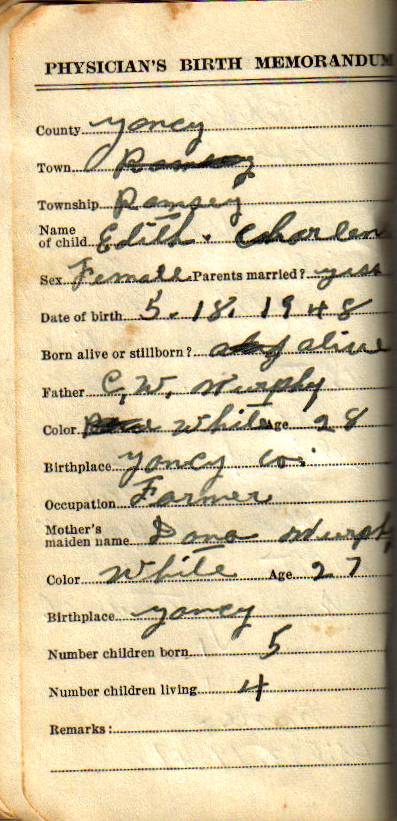 PHYSICIAN'S BIRTH MEMORANDUM
County Yancy
Town Ramsey
Township Ramsey
Name
of child Edith. Charlen
Sex Female Parents married? yess
Date of birth 5. 18. 1948
Born alive or stillborn? alive
Father C, W, Murphy
Color White Age 28
Birthplace Yancy Co.
Occupation Farmer
Mother's
maiden name Dona Murphy
Color White Age 27
Birthplace Yancy
Number children born 5
Number children living 4
Remarks: